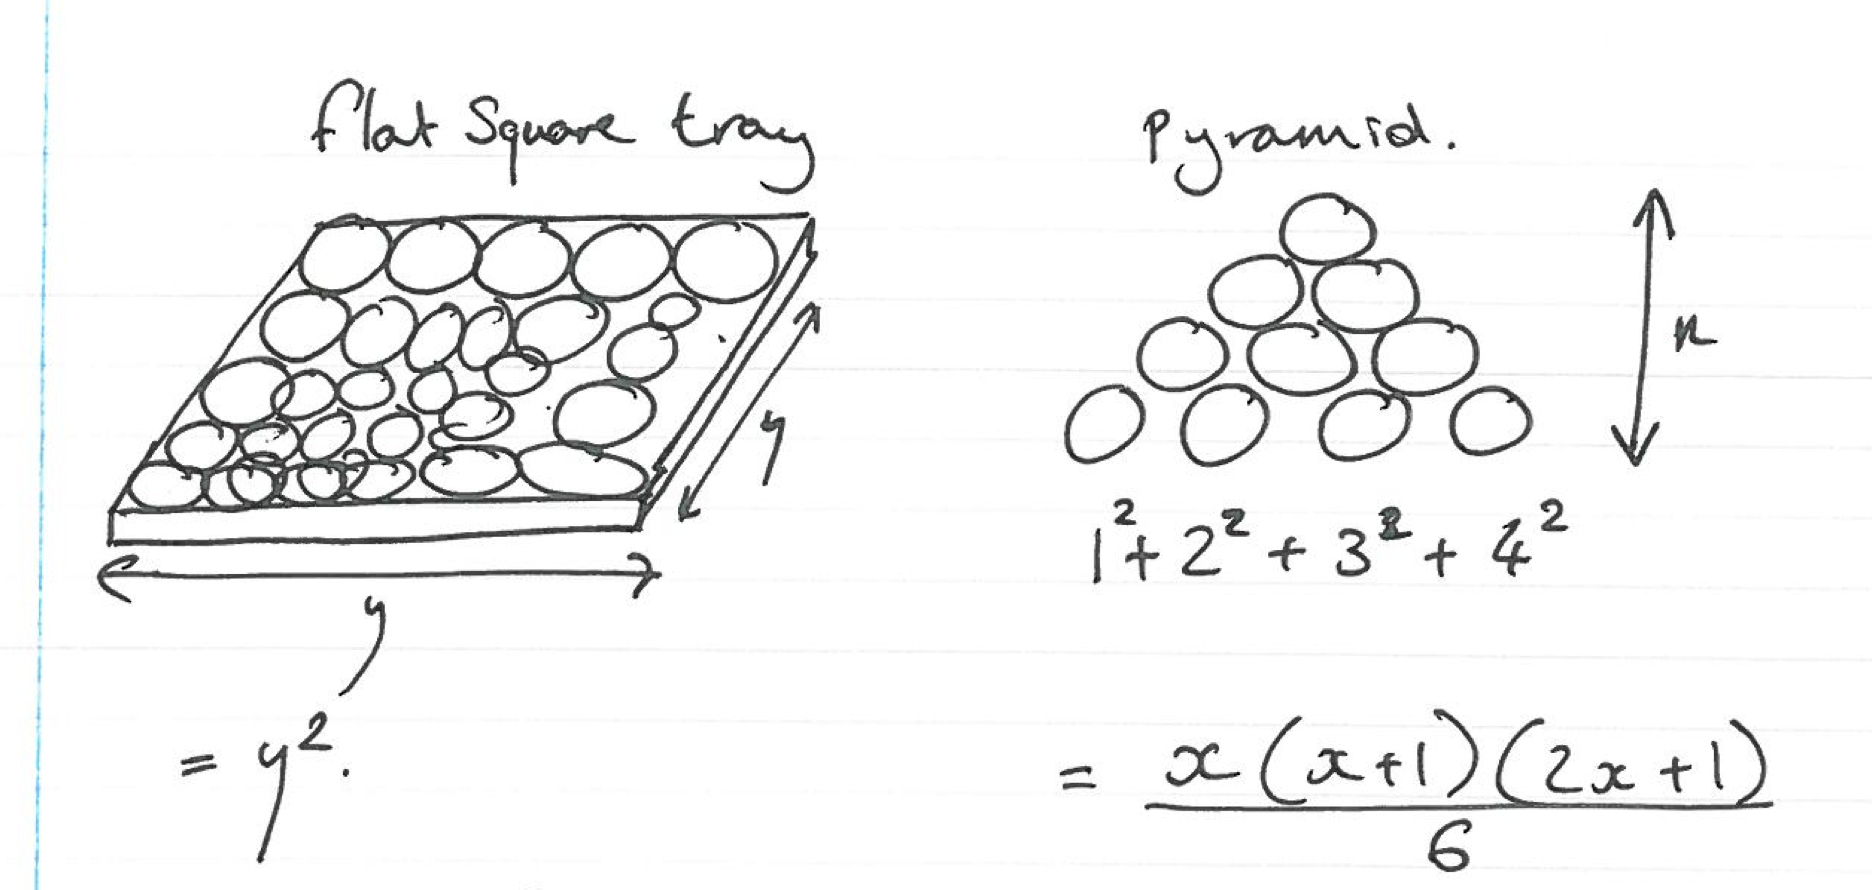 flat square tray
Pyramid.
n
y
1² + 2² + 3² + 4²
y
= y².
= x(x+1)(2x+1)
6